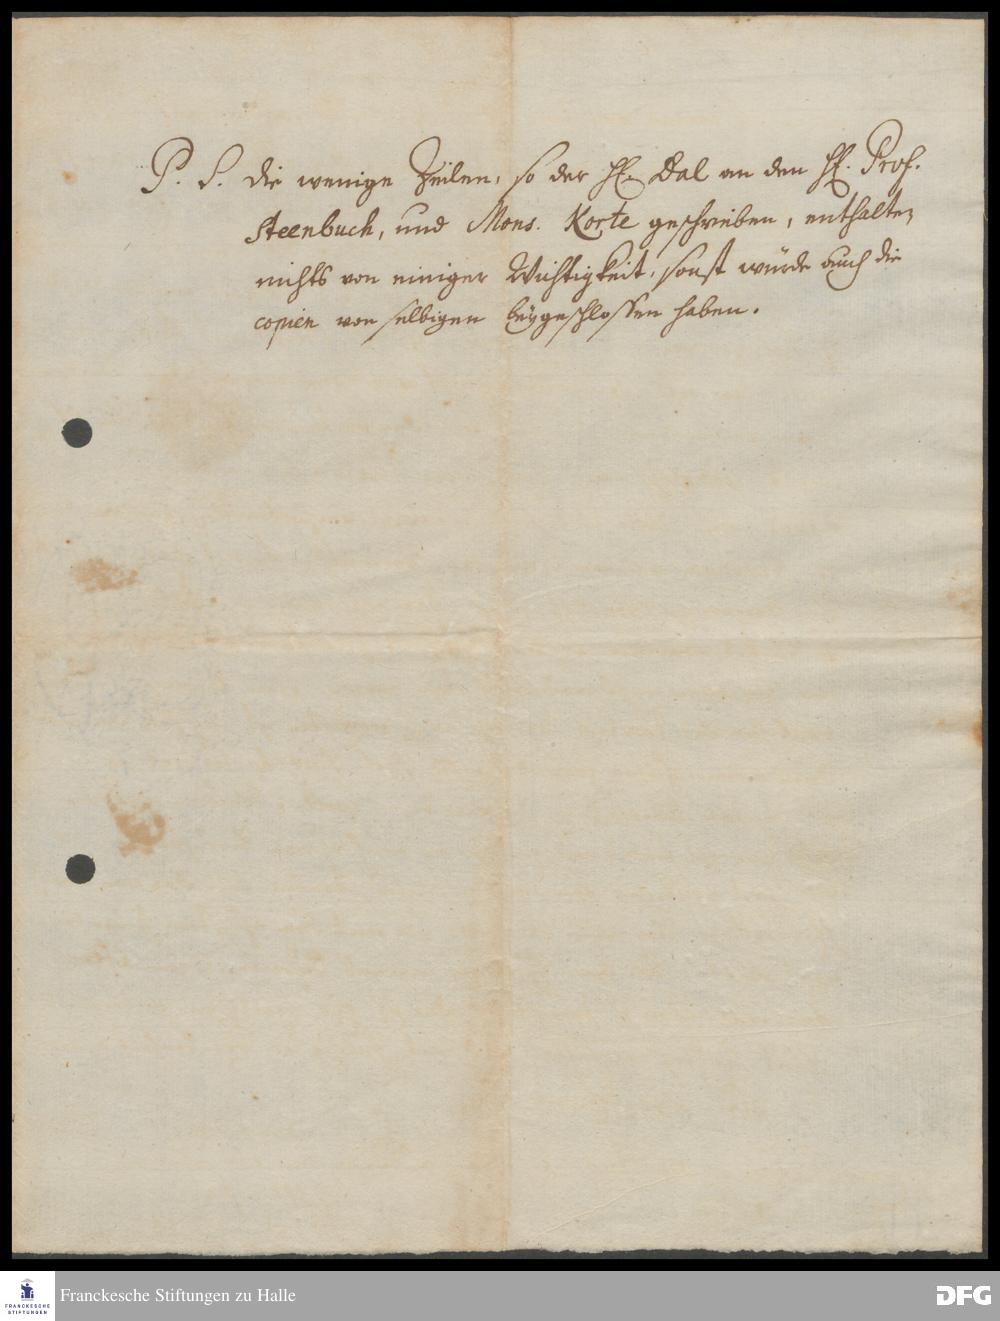 P. S. die wenige Zeilen, so der H. Dal an den H. Prof.
Steenbuch, und Mons. Korte geschrieben, enthalten
nichts von einiger Wichtigkeit, sonst würde auch die
copien von selbigen beÿgeschlossen haben.
FRANCKESCHE
STIFTUNGEN
Franckesche Stiftungen zu Halle
DFG